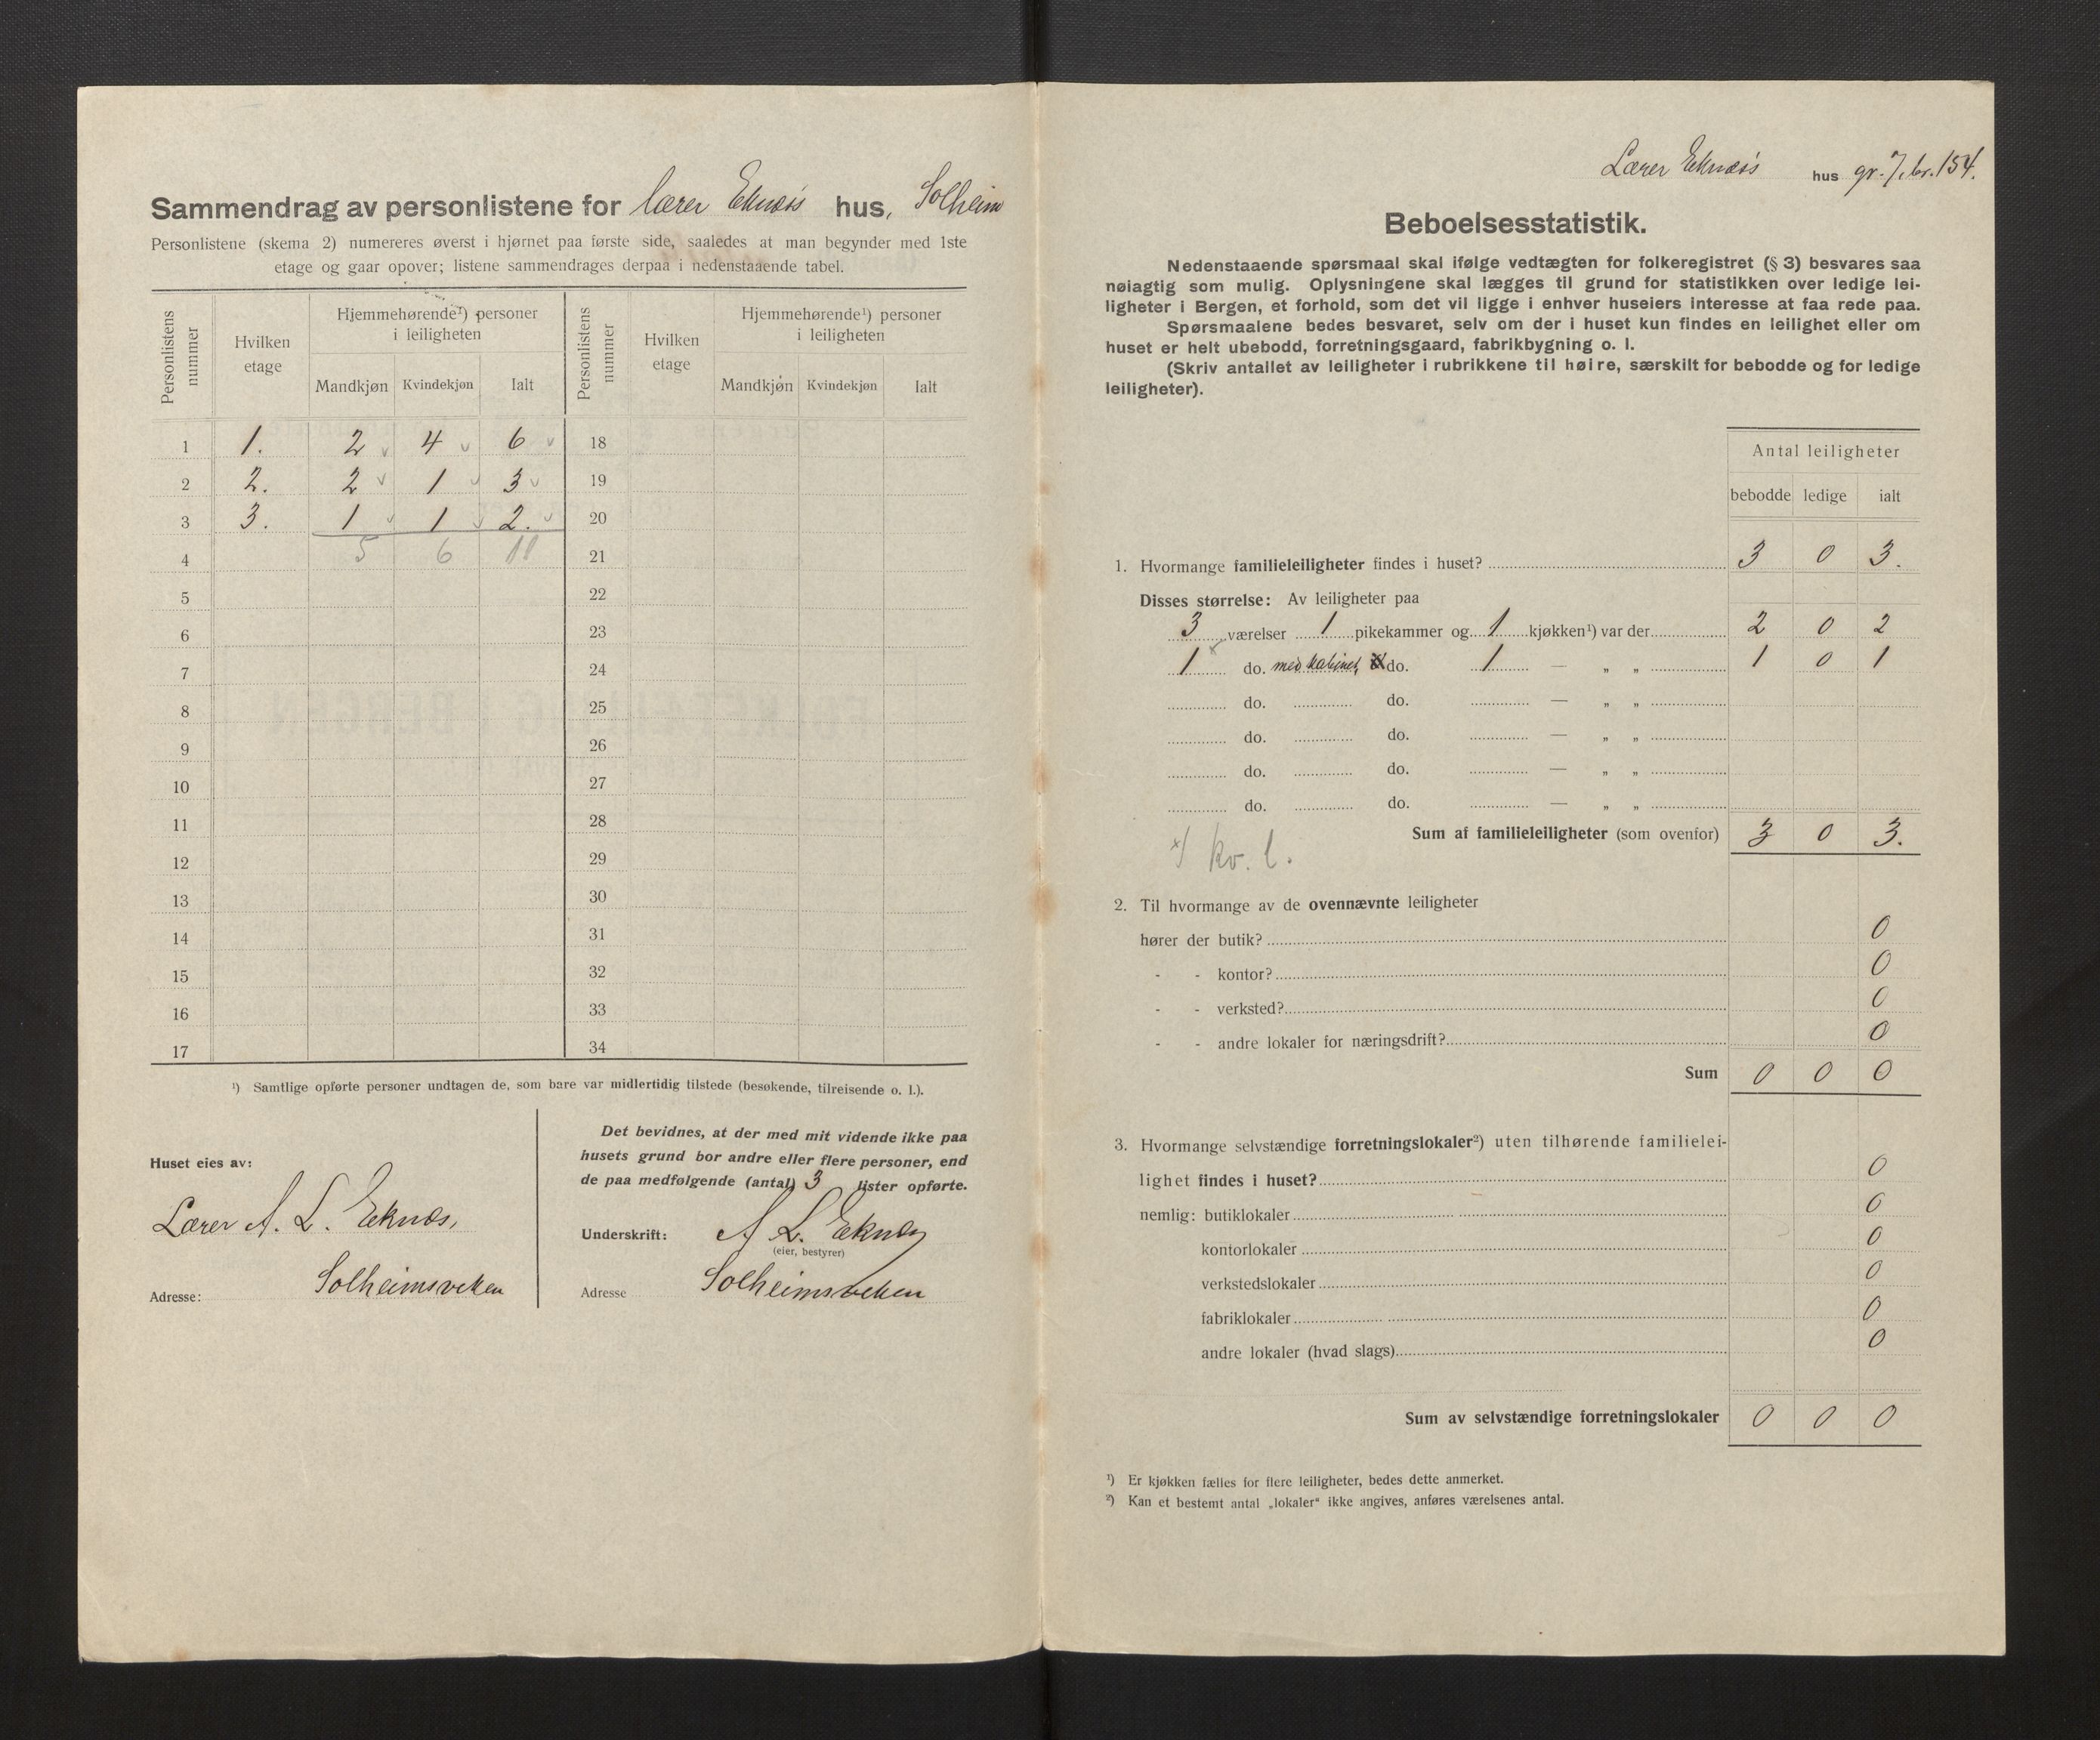 Sammendrag av personlistene for Lærer Eknæs's hus, Solheim
Personlistene (skema 2) numereres øverst i hjørnet paa første side, saaledes at man begynder med 1ste
etage og gaar opover; listene sammendrages derpaa i nedenstaaende tabel.
Personlistens nummer
Hvilken etage
Hjemmehørende¹) personer i leiligheten
Mandkjøn Kvindekjøn Ialt
Personlistens nummer
Hvilken etage
Hjemmehørende¹) personer i leiligheten
Mandkjøn Kvindekjøn Ialt
1 1. 2 4 6 18
2 2. 2 1 3 19
3 3. 1 1 2. 20
4 5 6 11 21
5 22
6 23
7 24
8 25
9 26
10 27
11 28
12 29
13 30
14 31
15 32
16 33
17 34
¹) Samtlige opførte personer undtagen de, som bare var midlertidig tilstede (besøkende, tilreisende o. l.).
Huset eies av:
Lærer A. L. Eknæs,
Adresse: Solheimsveken
Det bevidnes, at der med mit vidende ikke paa
husets grund bor andre eller flere personer, end
de paa medfølgende (antal) 3 lister opførte.
Underskrift: A L. Eknæs
(eier, bestyrer)
Adresse Solheimsveken
Lærer Eknæs's hus gr. 7, br. 154.
Beboelsesstatistik.
Nedenstaaende spørsmaal skal ifølge vedtægten for folkeregistret (§ 3) besvares saa
nøiagtig som mulig. Oplysningene skal lægges til grund for statistikken over ledige lei-
ligheter i Bergen, et forhold, som det vil ligge i enhver huseiers interesse at faa rede paa.
Spørsmaalene bedes besvaret, selv om der i huset kun findes en leilighet eller om
huset er helt ubebodd, forretningsgaard, fabrikbygning o. l.
(Skriv antallet av leiligheter i rubrikkene til høire, særskilt for bebodde og for ledige
leiligheter).
Antal leiligheter
bebodde ledige ialt
1. Hvormange familieleiligheter findes i huset? 3 0 3.
Disses størrelse: Av leiligheter paa
3 værelser 1 pikekammer og 1 kjøkken¹) var der 2 0 2
1 x do. med kabinet, do. 1 — „ „ 1 0 1
do. do. — „ „
do. do. — „ „
do. do. — „ „
do. do. — „ „
Sum af familieleiligheter (som ovenfor) 3 0 3.
x/ kv. l.
2. Til hvormange av de ovennævnte leiligheter
hører der butik? 0
- - kontor? 0
- - verksted? 0
- - andre lokaler for næringsdrift? 0
Sum 0 0 0
3. Hvormange selvstændige forretningslokaler²) uten tilhørende familielei-
lighet findes i huset? 0
nemlig: butiklokaler 0
kontorlokaler 0
verkstedslokaler 0
fabriklokaler 0
andre lokaler (hvad slags) 0
Sum av selvstændige forretningslokaler 0 0 0
¹) Er kjøkken fælles for flere leiligheter, bedes dette anmerket.
²) Kan et bestemt antal „lokaler“ ikke angives, anføres værelsenes antal.